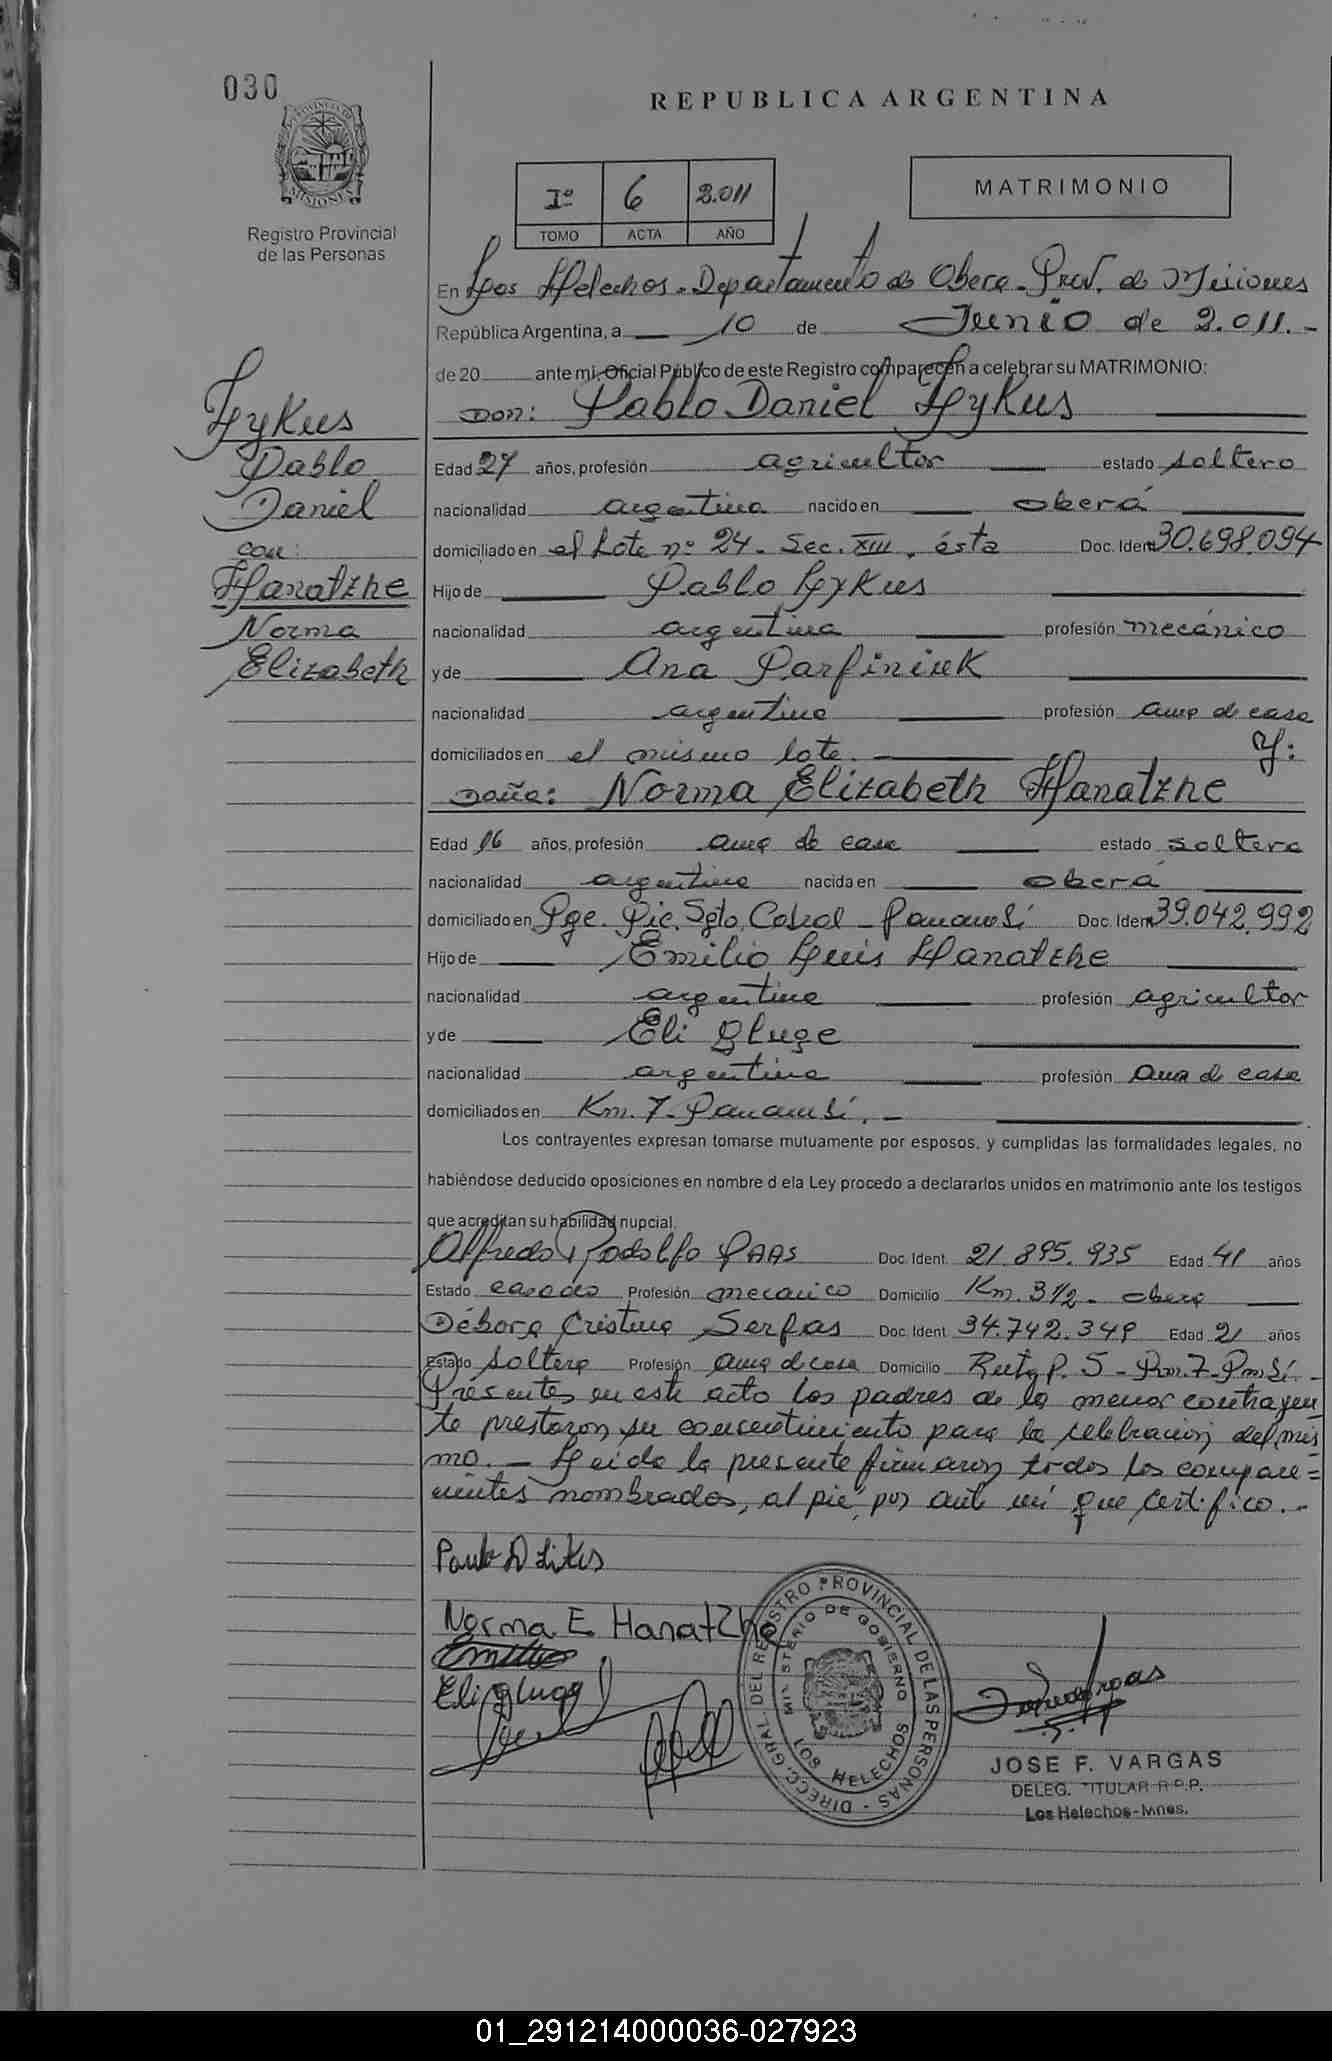 030
REPUBLICA ARGENTINA
PROVINCIA DE MISIONES
Registro Provincial
de las Personas
Iº 6 2.011
TOMO ACTA AÑO
MATRIMONIO
En Los Helechos - Departamento de Oberá - Prov. de Misiones
República Argentina, a 10 de Junio de 2.011.-
de 20 ante mi, Oficial Público de este Registro comparecen a celebrar su MATRIMONIO:
Don: Pablo Daniel Lykus
Edad 27 años, profesión agricultor estado soltero
nacionalidad argentina nacido en Oberá
domiciliado en el Lote nº 24 - Sec. XIII, ésta Doc. Ident 30.698.094
Hijo de Pablo Lykus
nacionalidad argentina profesión mecánico
y de Ana Parfiniuk
nacionalidad argentina profesión ama de casa
domiciliados en el mismo lote. Y:
Doña: Norma Elizabeth Hanatzhe
Edad 16 años, profesión ama de casa estado soltera
nacionalidad argentina nacida en Oberá
domiciliado en Pje. Pic. Sgto. Cabral - Panambí Doc. Ident 39.042.992
Hijo de Emilio Luis Hanatzhe
nacionalidad argentina profesión agricultor
y de Eli Gluge
nacionalidad argentina profesión ama de casa
domiciliados en Km. 7 - Panambí. -
Los contrayentes expresan tomarse mutuamente por esposos, y cumplidas las formalidades legales, no
habiéndose deducido oposiciones en nombre d ela Ley procedo a declararlos unidos en matrimonio ante los testigos
que acreditan su habilidad nupcial.
Alfredo Rodolfo Paas Doc. Ident. 21.895.935 Edad 41 años
Estado casado Profesión mecanico Domicilio Km. 3 1/2 - Oberá
Débora Cristina Serfas Doc. Ident 34.742.349 Edad 21 años
Estado soltera Profesión ama d casa Domicilio Ruta P. 5 - Km. 7 - Pmbí. -
Presentes en este acto los padres de la menor contrayen
te prestaron su consentimiento para la celebracion del mis
mo. - Leida la presente firmaron todos los compare=
cientes nombrados, al pie, por ante mí que certifico. -
Lykus
Pablo
Daniel
con:
Hanatzhe
Norma
Elizabeth
Norma E. Hanatzhe
Eli gluge
DIRECC. GRAL. DEL REGISTRO PROVINCIAL DE LAS PERSONAS
MINISTERIO DE GOBIERNO
LOS HELECHOS
JOSE F. VARGAS
DELEG. TITULAR R.P.P.
Los Helechos - Mnes.
01_291214000036-027923